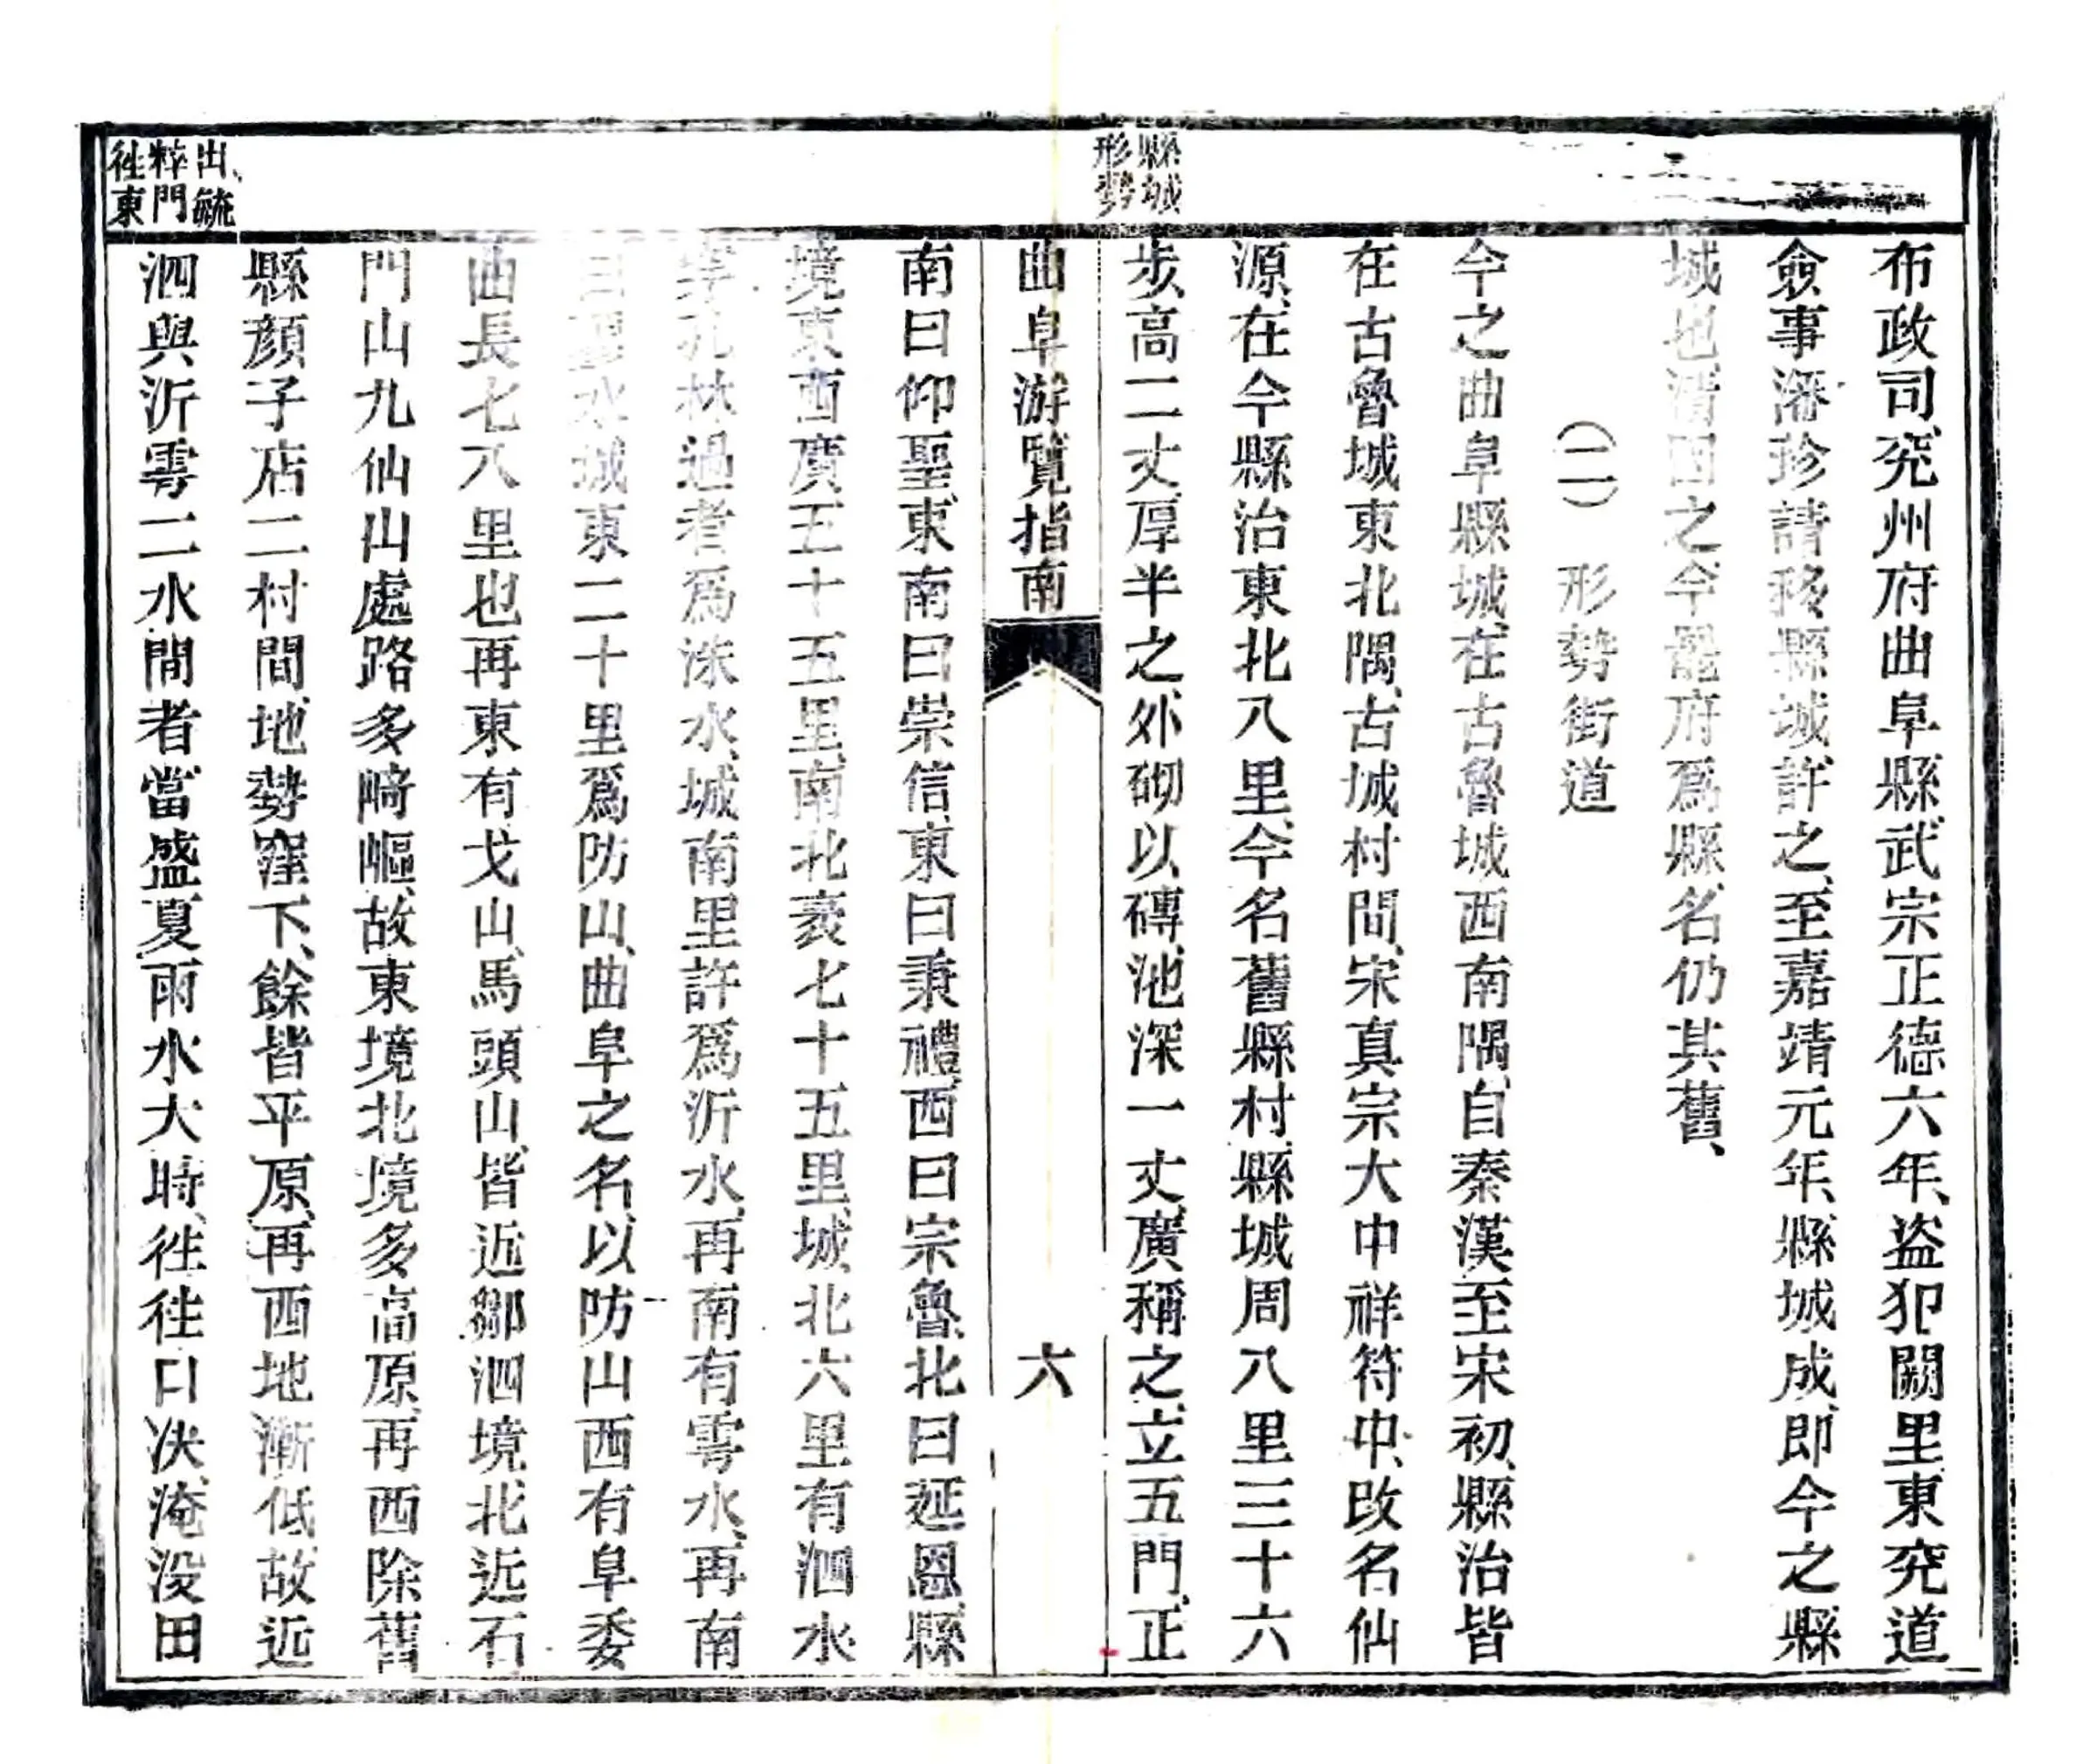 布政司、兖州府曲阜縣、武宗正德六年、盜犯闕里、東兖道
僉事潘珍請移縣城、許之、至嘉靖元年、縣城成、即今之縣
城也、清因之、今罷府爲縣、名仍其舊、
(二) 形勢街道
今之曲阜縣城、在古魯城西南隅、自秦漢至宋初、縣治皆
在古魯城東北隅、古城村間、宋真宗大中祥符中、改名仙
源、在今縣治東北八里、今名舊縣村、縣城周八里三十六
步、高二丈、厚半之、外砌以磚、池深一丈、廣稱之、立五門、正
縣城
形勢
曲阜游覽指南
六
南曰仰聖、東南曰崇信、東曰秉禮、西曰宗魯、北曰延恩、縣
境東西廣五十五里、南北袤七十五里、城北六里有泗水
孔林過者爲洙水、城南里許爲沂水、再南有雩水、再南
水城東二十里爲防山、曲阜之名、以防山西有阜委
曲長七八里也、再東有戈山、馬頭山、皆近鄒泗境、北近石
門山九仙山處、路多崎嶇、故東境北境多高原、再西除舊
縣顏子店二村間、地勢窪下、餘皆平原、再西地漸低、故近
泗與沂雩二水間者、當盛夏雨水大時、往往口決、淹没田
出毓
粹門
往東